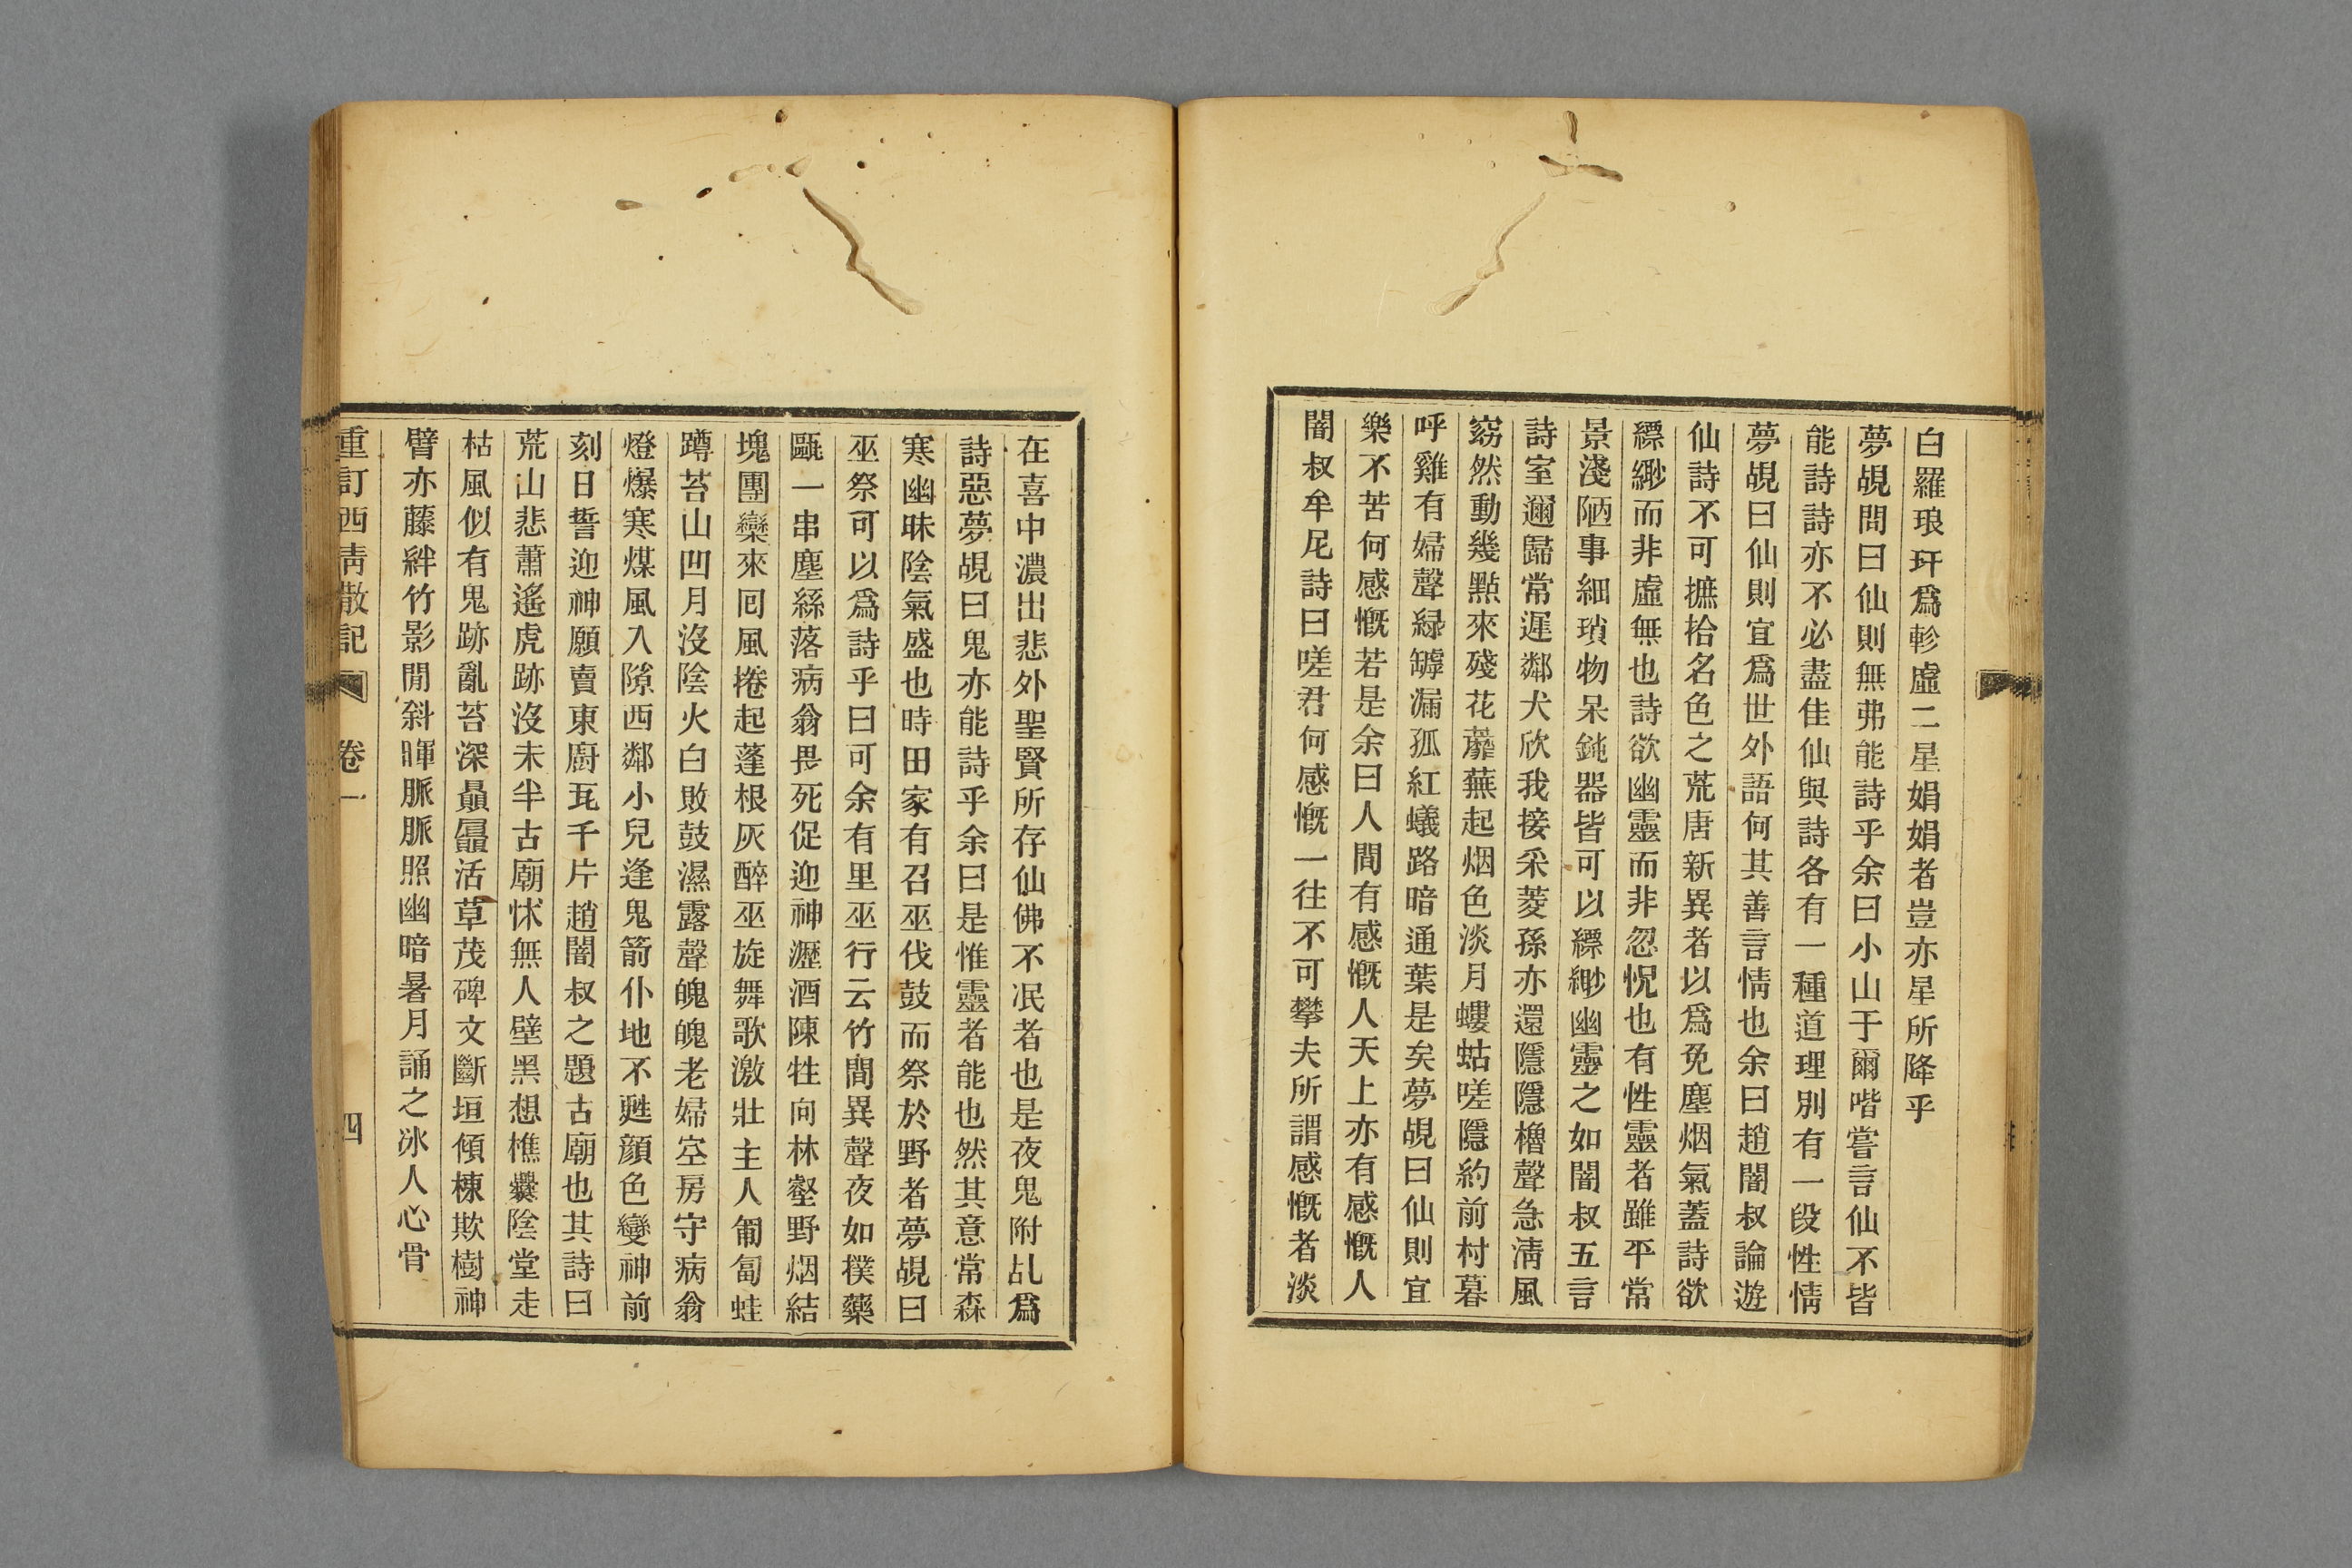 白羅琅玕爲軫虛二星娟娟者豈亦星所降乎
夢覘問曰仙則無弗能詩乎余曰小山于爾喈嘗言仙不皆
能詩詩亦不必盡佳仙與詩各有一種道理別有一段性情
夢覘曰仙則宜爲世外語何其善言情也余曰趙闇叔論遊
仙詩不可摭拾名色之荒唐新異者以爲免塵烟氣蓋詩欲
縹緲而非虛無也詩欲幽靈而非忽怳也有性靈者雖平常
景淺陋事細瑣物呆鈍器皆可以縹緲幽靈之如闇叔五言
詩室邇歸常遲鄰犬欣我接采菱孫亦還隱隱櫓聲急淸風
窈然動幾點來殘花蘼蕪起烟色淡月螻蛄嗟隱約前村暮
呼雞有婦聲綠罅漏孤紅蟻路暗通葉是矣夢覘曰仙則宜
樂不苦何感慨若是余曰人間有感慨人天上亦有感慨人
闇叔牟尼詩曰嗟君何感慨一往不可攀夫所謂感慨者淡
在喜中濃出悲外聖賢所存仙佛不泯者也是夜鬼附乩爲
詩惡夢覘曰鬼亦能詩乎余曰是惟靈者能也然其意常森
寒幽昧陰氣盛也時田家有召巫伐鼓而祭於野者夢覘曰
巫祭可以爲詩乎曰可余有里巫行云竹間異聲夜如撲藥
甌一串塵絲落病翁畏死促迎神瀝酒陳牲向林壑野烟結
塊團欒來回風捲起蓬根灰醉巫旋舞歌激壯主人匍匐蛙
蹲苔山凹月沒陰火白敗鼓濕露聲魄魄老婦空房守病翁
燈爆寒煤風入隙西鄰小兒逢鬼箭仆地不甦顔色變神前
刻日誓迎神願賣東廚瓦千片趙闇叔之題古廟也其詩曰
荒山悲蕭遙虎跡沒未半古廟怵無人壁黑想樵爨陰堂走
枯風似有鬼跡亂苔深贔屭活草茂碑文斷垣傾棟欺樹神
臂亦藤絆竹影閒斜暉脈脈照幽暗暑月誦之冰人心骨
重訂西青散記 卷一 四